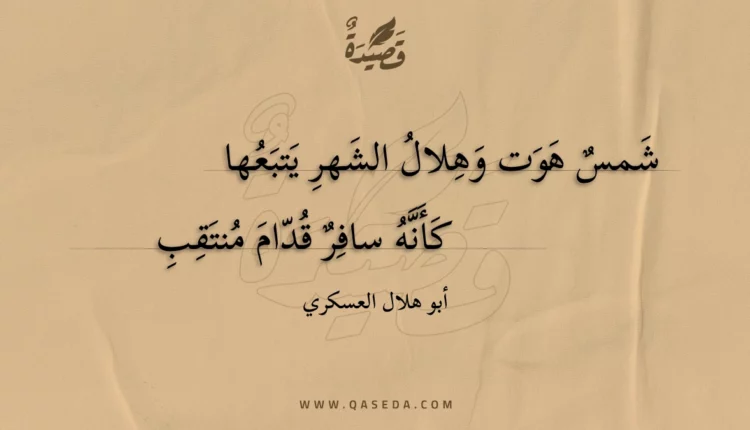 قَصِيْدَةٌ
شَمسٌ هَوَت وَهِلالُ الشَهرِ يَتبَعُها
كَأَنَّهُ سافِرٌ قُدّامَ مُنتَقِبِ
أبو هلال العسكري
WWW.QASEDA.COM